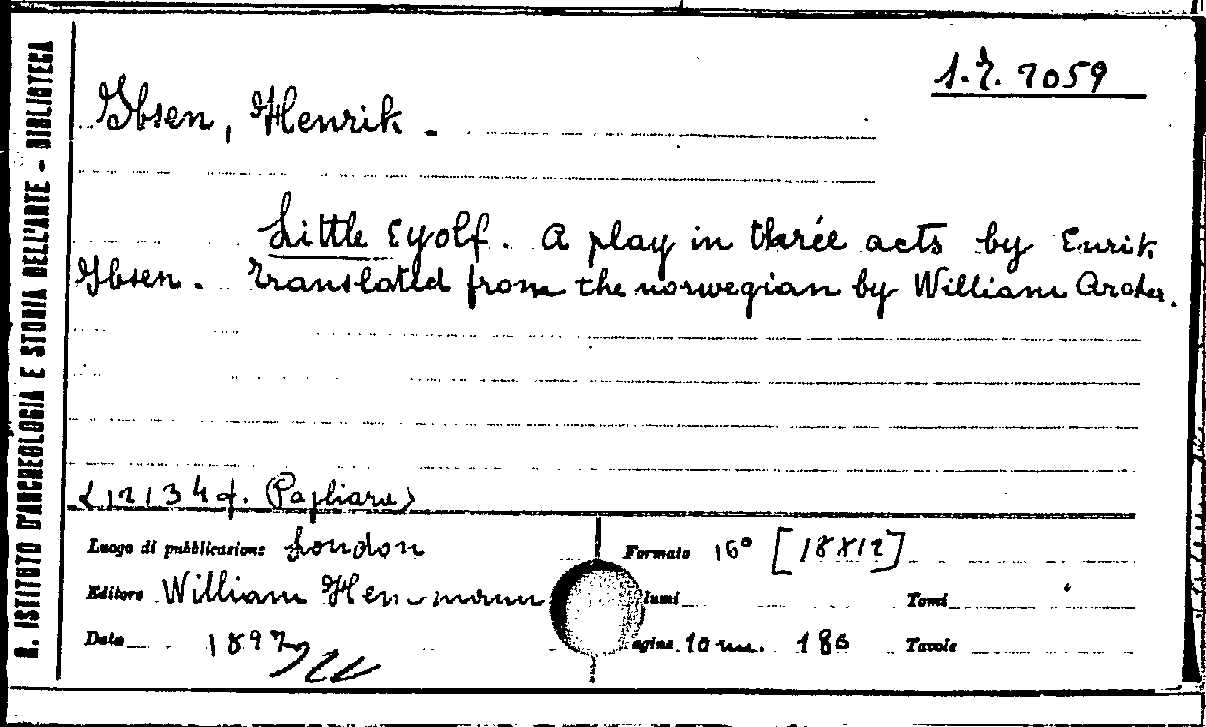 R. ISTITUTO D'ARCHEOLOGIA E STORIA DELL'ARTE - BIBLIOTECA
7059
Ibsen, Henrik.
Little Eyolf. A play in three acts by Enrik
Ibsen. Translated from the norwegian by William Archer.
(Pagliara)
Luogo di pubblicazione London
Formato 16° [18X12]
Editore William
lumi
Tomi
Data 1897
agine 186
Tavole